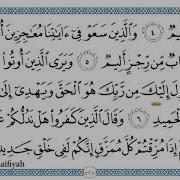 يمٌ ٤ وَٱلَّذِينَ سَعَوْ فِىٓ ءَايَٰتِنَا مُعَٰجِزِينَ أُ
ابٌ مِّن رِّجْزٍ أَلِيمٌ ٥ وَيَرَى ٱلَّذِينَ أُوتُوا۟
زِلَ إِلَيْكَ مِن رَّبِّكَ هُوَ ٱلْحَقَّ وَيَهْدِىٓ إِلَىٰ
ٱلْحَمِيدِ ٦ وَقَالَ ٱلَّذِينَ كَفَرُوا۟ هَلْ نَدُلُّكُمْ
مْ إِذَا مُزِّقْتُمْ كُلَّ مُمَزَّقٍ إِنَّكُمْ لَفِى خَلْقٍ جَدِيدٍ
aifiyah ٤٢٨